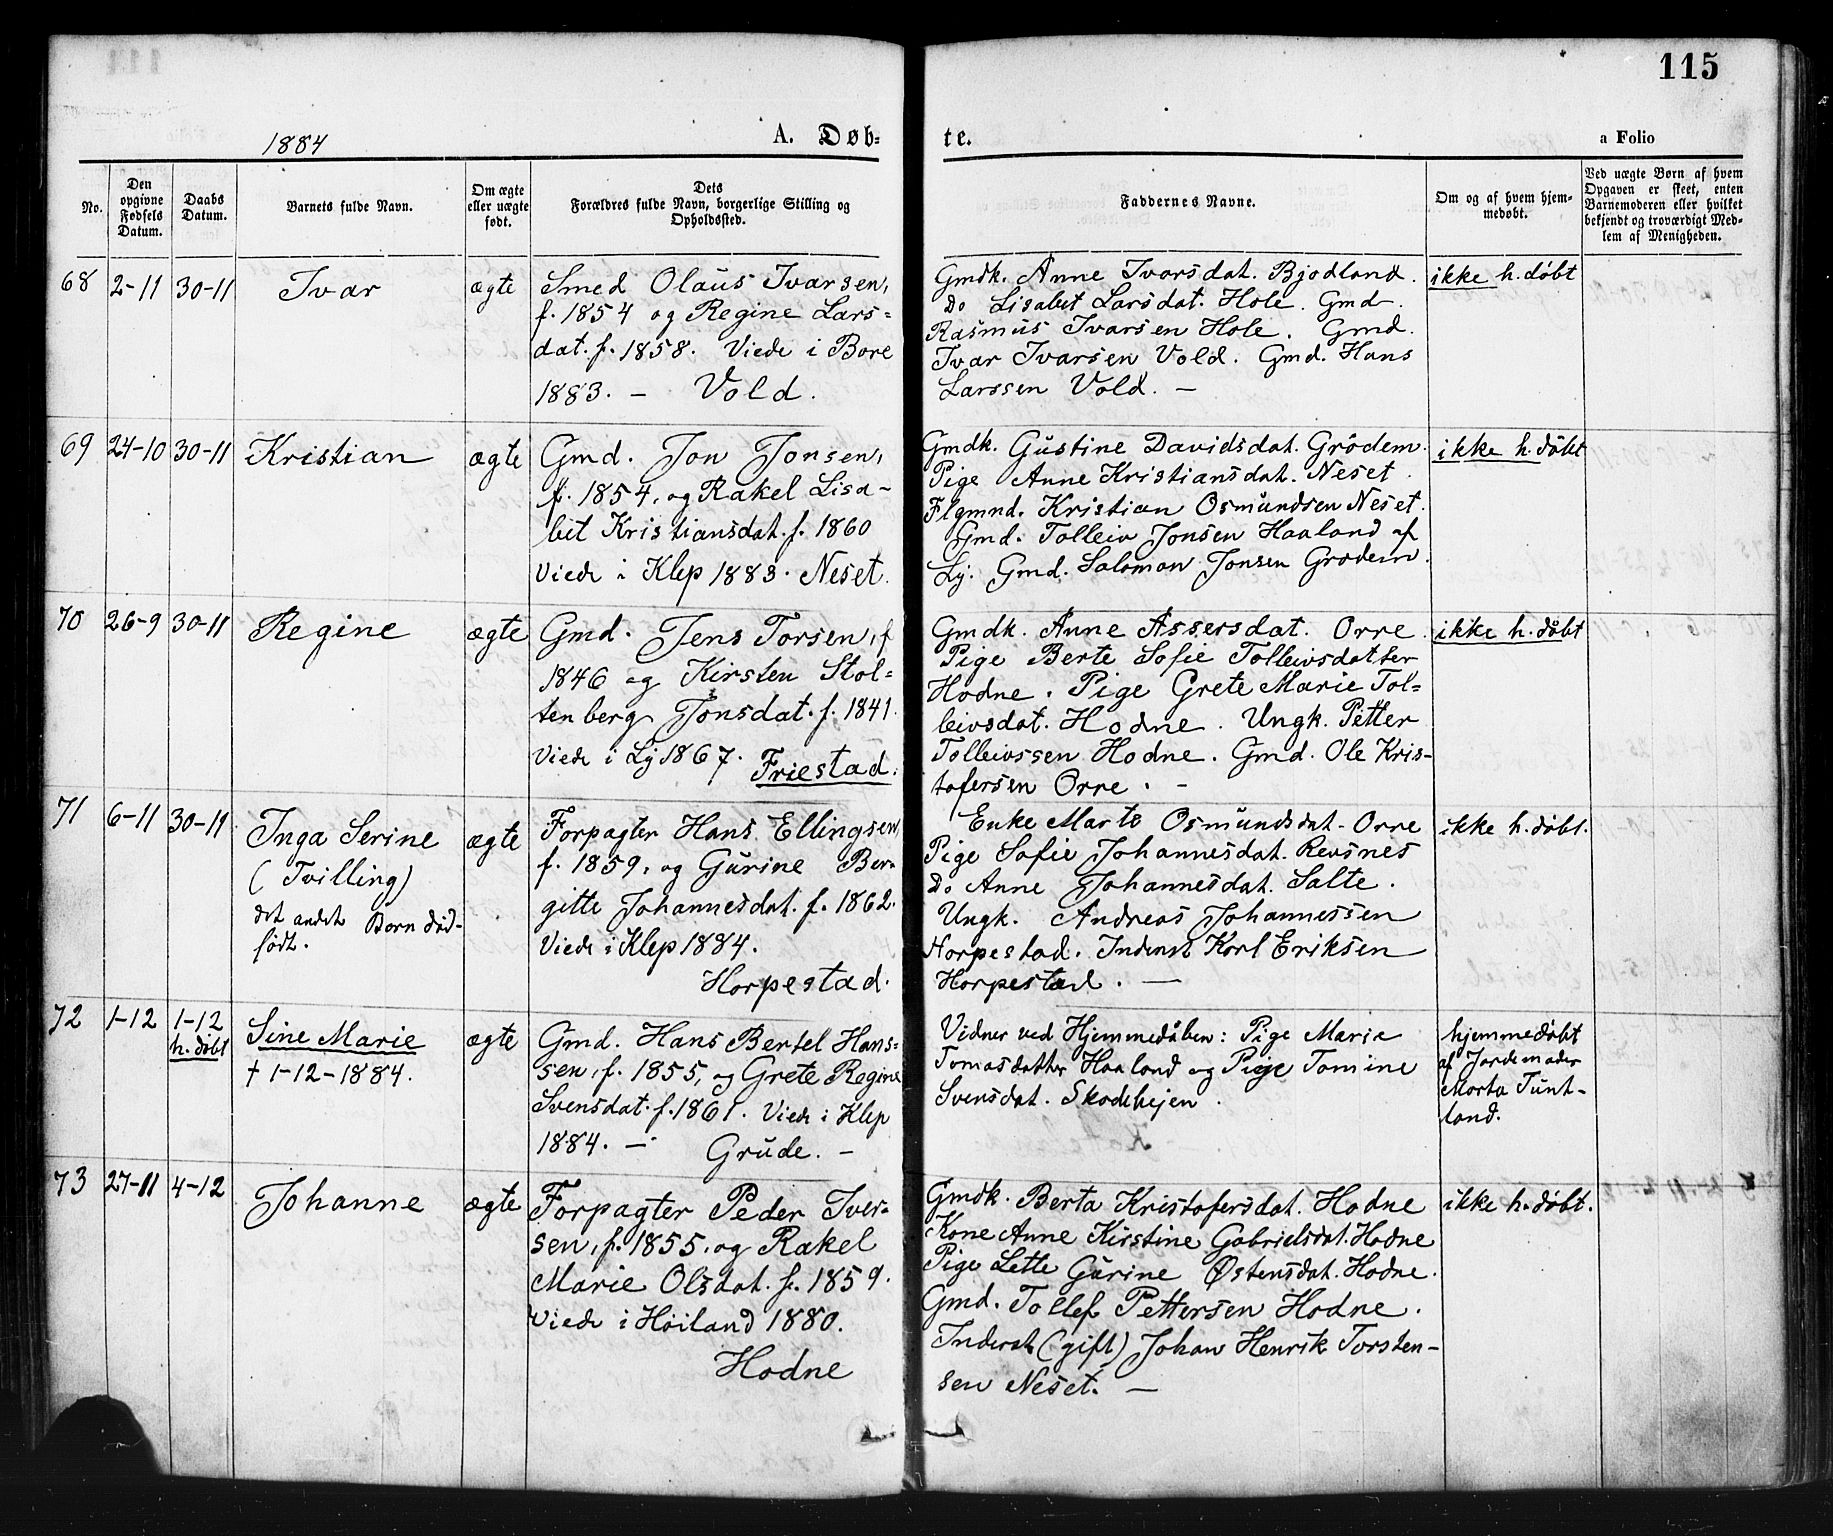 115
1884
A. Døb-
te.
a Folio
No.
Den
opgivne
Fødsels
Datum.
Daabs
Datum.
Barnets fulde Navn.
Om ægte
eller uægte
født.
Dets
Forældres fulde Navn, borgerlige Stilling og
Opholdssted.
Faddernes Navne.
Om og af hvem hjem-
medøbt.
Ved uægte Børn af hvem
Opgaven er skeet, enten
Barnemoderen eller hvilket
bekjendt og troværdigt Med-
lem af Menigheden.
68
2-11
30-11
Ivar
ægte
Smed Olaus Ivarsen,
f. 1854 og Regine Lars=
dat. f. 1858. Viede i Bore
1883. - Vold.
Gmdk. Anne Ivarsdat. Bjodland.
Do Lisabet Larsdat. Hole. Gmd.
Rasmus Ivarsen Hole. Gmd.
Ivar Ivarsen Vold. Gmd. Hans
Larssen Vold. -
ikke h. døbt
69
24-10
30-11
Kristian
ægte
Gmd. Jon Jonsen,
f. 1854, og Rakel Lisa-
bet Kristiansdat. f. 1860
Viede i Klep 1883. Neset.
Gmdk. Gustine Davidsdat. Grödem.
Pige Anne Kristiansdat. Neset.
Flgmnd. Kristian Osmundsen Neset.
Gmd. Tolleiv Jonsen Haaland af
Lj. Gmd. Salomon Jonsen Grodem.
ikke h. døbt
70
26-9
30-11
Regine
ægte
Gmd. Jens Torsen, f
1846 og Kirsten Stol=
tenberg Jonsdat. f. 1841.
Viede i Lj 1867. Friestad.
Gmdk. Anne Assersdat. Orre.
Pige Berte Sofie Tolleivsdatter
Hodne. Pige Grete Marie Tol=
leivsdat. Hodne. Ungk. Petter
Tolleivssen Hodne. Gmd. Ole Kris-
tofersen Orre. -
ikke h. døbt
71
6-11
30-11
Inga Serine
(Tvilling)
det andet Barn død-
født.
ægte
Forpagter Hans Ellingsen,
f. 1859, og Gurine Ber-
gitte Johannesdat. f. 1862.
Viede i Klep 1884.
Horpestad.
Enke Marte Osmundsdat. Orre
Pige Sofie Johannesdat. Revsnes
Do Anne Johannesdat. Salte.
Ungk. Andreas Johannessen
Horpestad. Inderst Karl Eriksen
Horpestad. -
ikke h. døbt.
72
1-12
1-12
h. døbt
Sine Marie
† 1-12-1884.
ægte
Gmd. Hans Bertel Hans=
sen, f. 1855, og Grete Regine
Svensdat. f. 1861. Viede i Klep
1884. - Grude. -
Vidner ved Hjemmedåben: Pige Marie
Tomasdatter Haaland og Pige Tomine
Svensdat. Skadehejen.
hjemmedøbt
af Jordemoder
Marta Tunt-
land.
73
27-11
4-12
Johanne
ægte
Forpagter Peder Iver-
sen, f. 1855, og Rakel
Marie Olsdat. f. 1859.
Viede i Høiland 1880.
Hodne
Gmdk. Berta Kristofersdat. Hodne
Kone Anne Kirstine Gabrielsdat. Hodne
Pige Lette Gurine Østensdat. Hodne.
Gmd. Tollef Pettersen Hodne.
Inderst (gift) Johan Henrik Torsten-
sen Neset. -
ikke h. døbt.